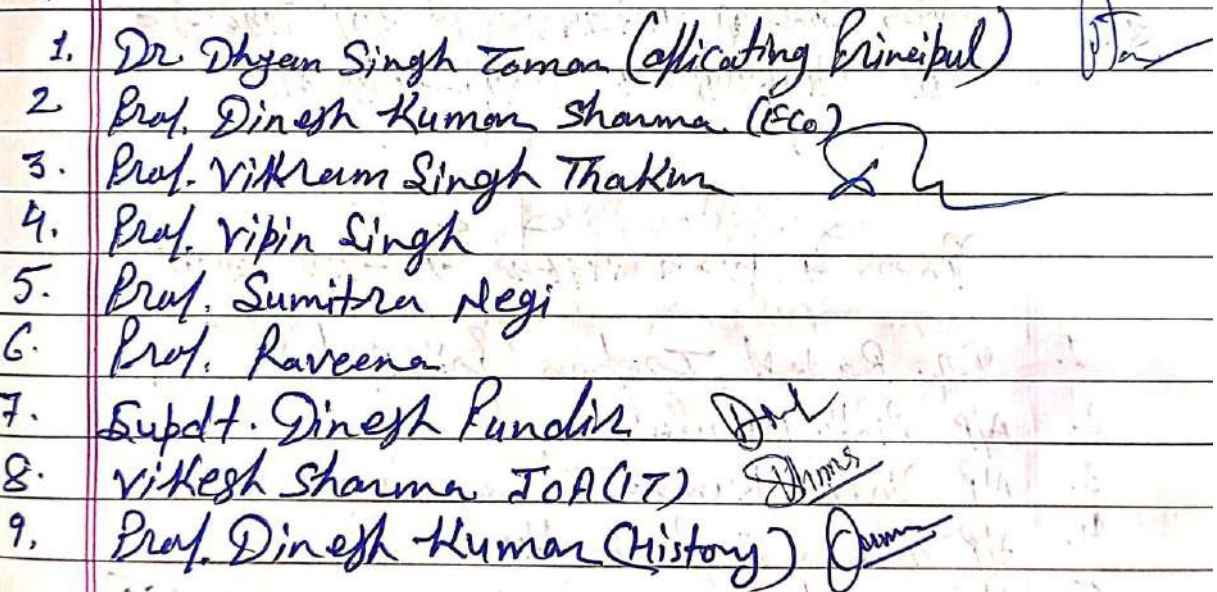 1. Dr. Dhyan Singh Tomar (officating Principal)
2 Prof. Dinesh Kumar Sharma (Eco)
3. Prof. Vikram Singh Thakur
4. Prof. Vipin Singh
5. Prof. Sumitra Negi
6. Prof. Raveena
7. Supdt. Dinesh Pundir
8. Vikesh Sharma JOA(IT)
9. Prof. Dinesh Kumar (History)